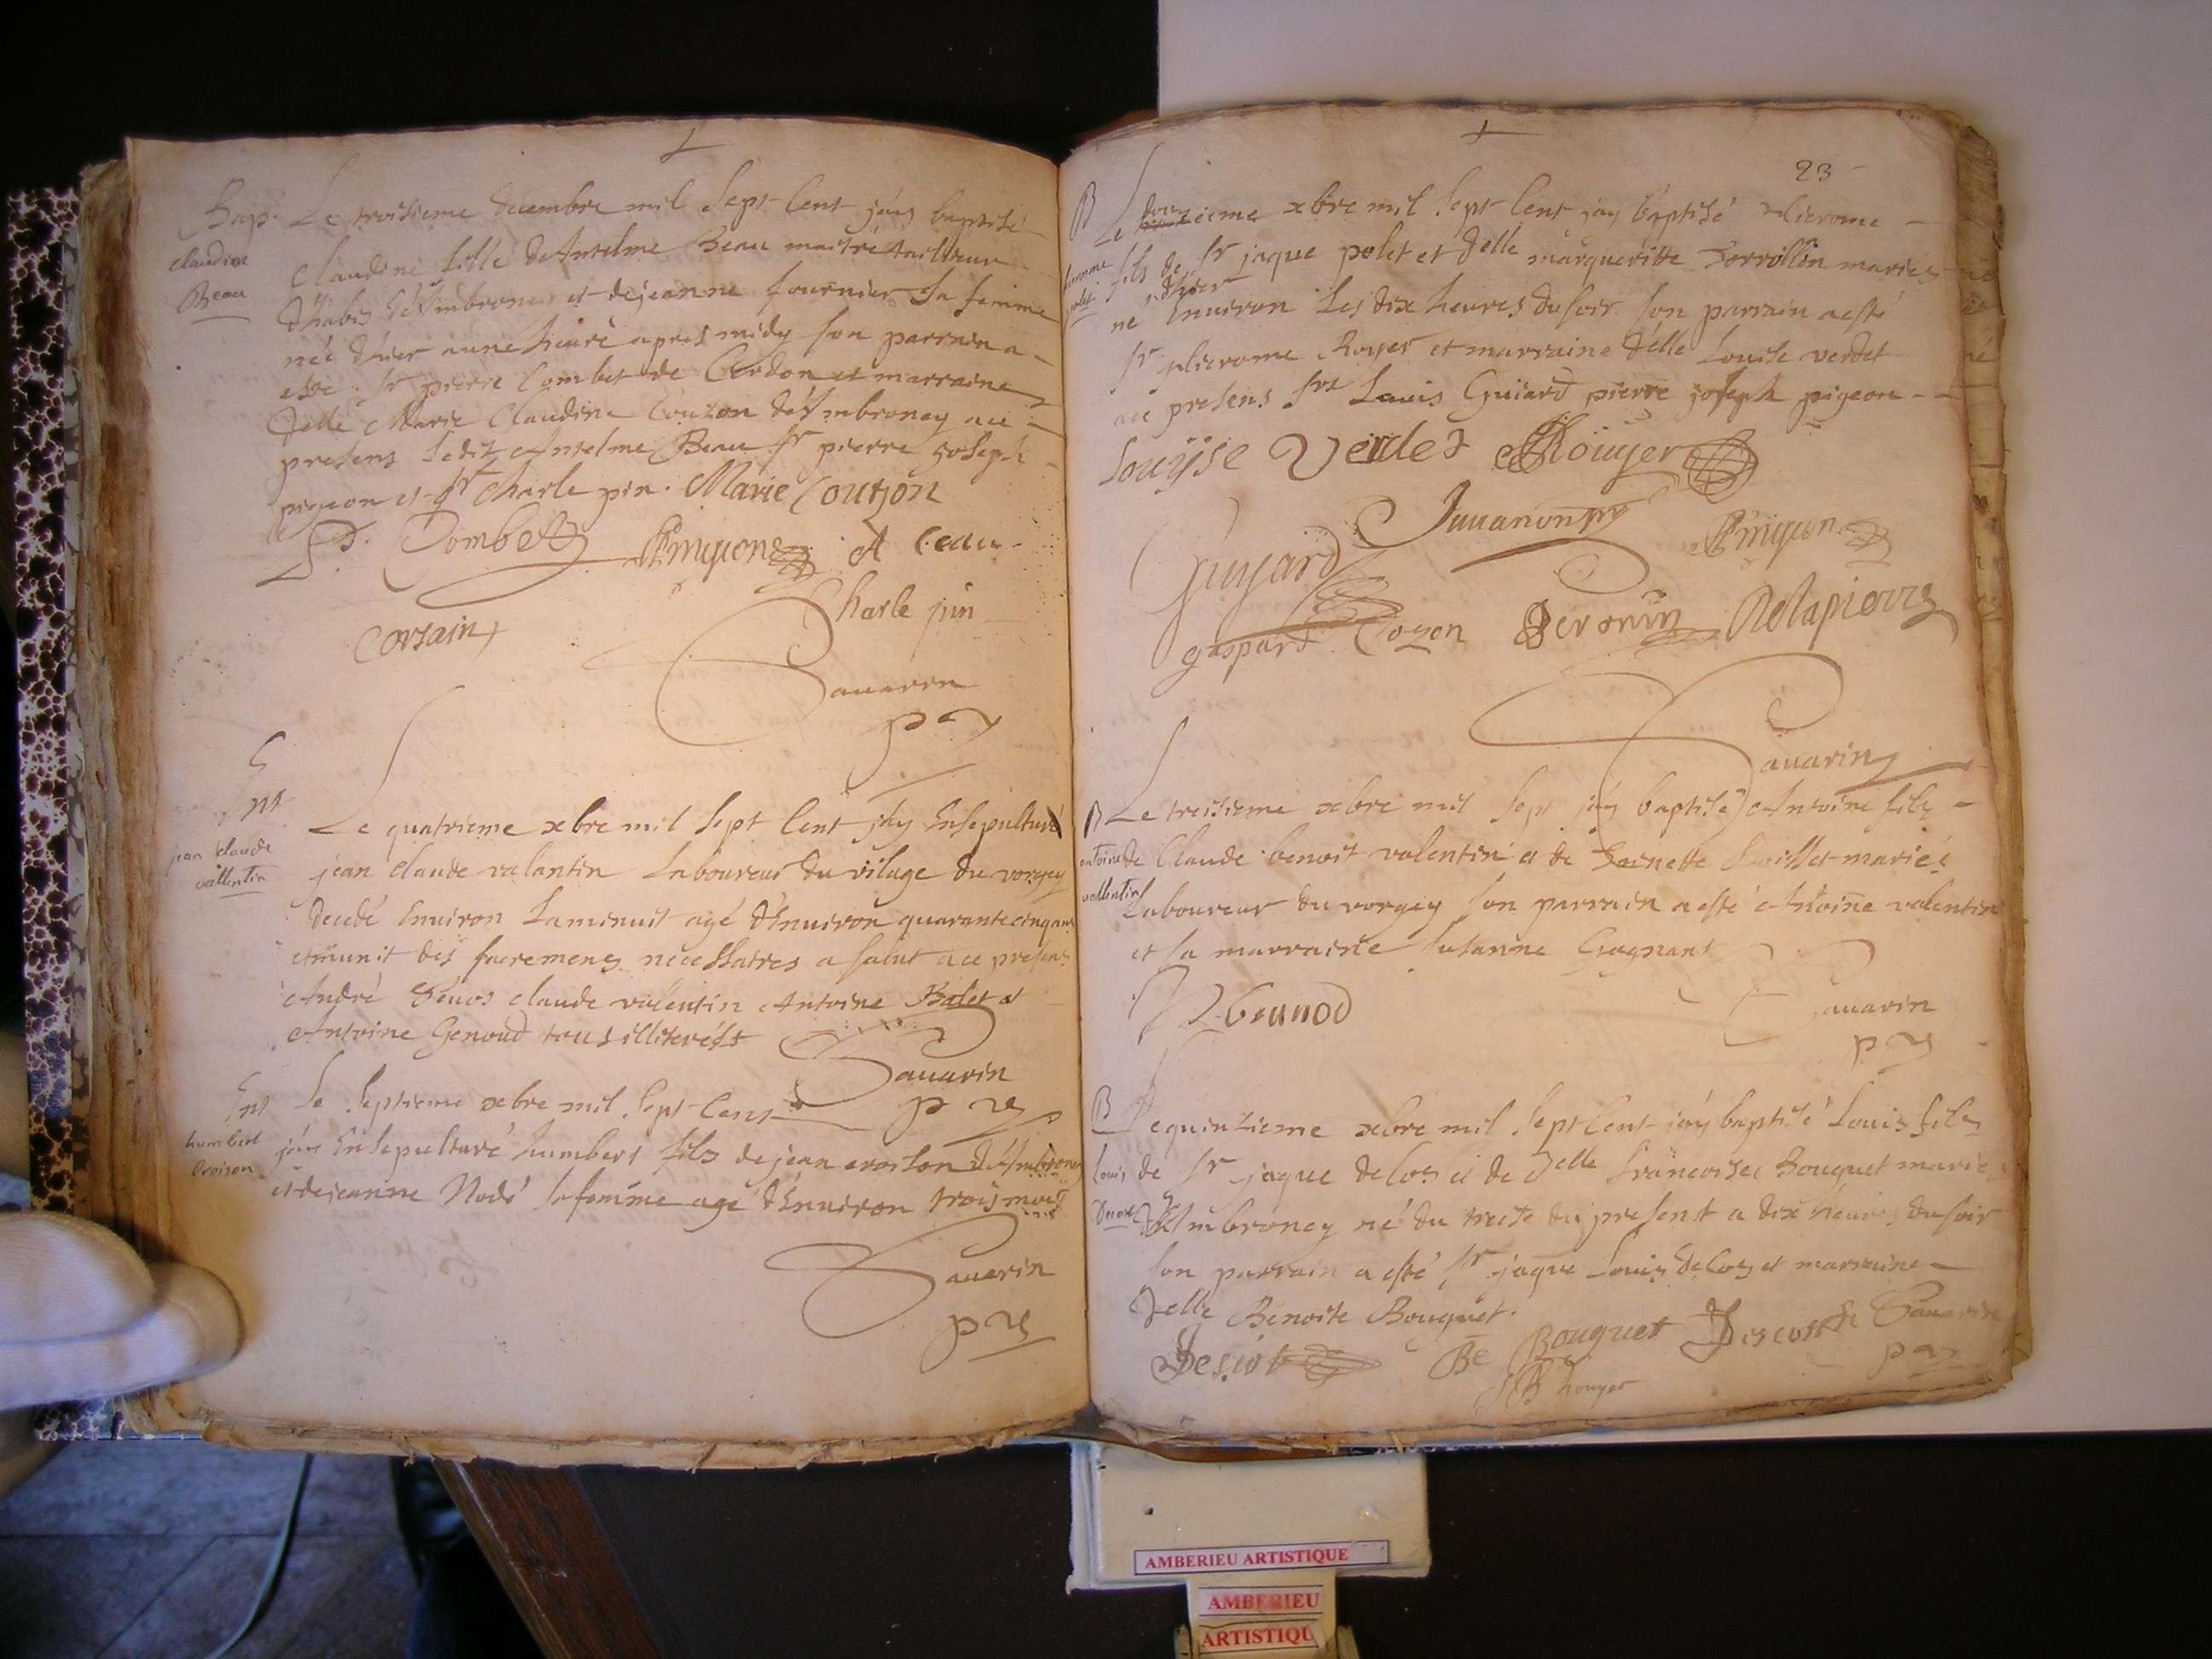 Bap. Le troisieme decembre mil sept cent jay baptisé
claudine
Beau
Claudine fille de Antelme Beau maitre tailleur
d'habis d'Ambronay et de jeanne fournier sa femme
née d'hier a une heure apres midy son parrain a
esté sr pierre Combet de Cerdon et marraine
delle Marie Claudine Couzon d'Ambronay ace
presens ledit Antelme Beau sr pierre joseph
pigeon et sr charle pin. Marie Coutzon
P. Combet A beau
Charle pin
Corsain
Sauarin
Ent
jean claude
vallentin
Le quatrieme xbre mil sept cent jay Ensepulturé
jean claude valantin laboureur du vilage du vorgey
decedé Enuiron la minuit agé d'Enuiron quarante cinq ans
et munit des sacremens necessaires a salut ace presens
André claude valentin Antoine Balet et
Antoine Genoud tous illiterés
Sauarin
Ent
humbert
Oroison
Le septieme xbre mil sept cent
jay Ensepulturé humbert fils de jean oroison d'Ambronay
et de jeanne Nodé sa femme agé d'Enuiron trois mois
Sauarin
23
B Le douzieme xbre mil sept cent jay baptisé hierome
fils de sr jaque polet et delle margueritte maries
d'hier
né Enuiron les dix heures du soir son parrain a esté
sr hierome Royer et marraine delle Louise verdet
ace presens srs Louis Guiard pierre joseph pigeon
Louÿse Verdet Roüyer
Juuanon
Guyard
gaspard Cozon Peronin Delapierre
Sauarin
B Le treisieme xbre mil sept jay baptisé Antoine fils
antoine
vallentin
de Claude benoit valentin et de mariés
Laboureur du vorgey son parrain a esté Antoine valentin
et sa marraine susanne Gagnant
Brunod
Sauarin
B Le quinzieme xbre mil sept cent jay baptisé Louis fils
Louis
de sr jaque decos et de delle francoise Bouquet maries
d'Ambronay né du treise du present a dix heures du soir
son parrain a esté sr jaque Louis decos et marraine
delle Benoite Bouquet.
Descot Be Bouquet Descoste Sauarin
JB Rouyer
AMBERIEU ARTISTIQUE
AMBERIEU
ARTISTIQU